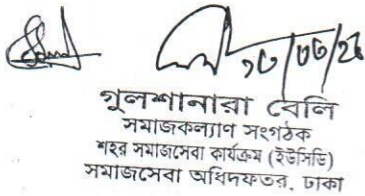 ১৩/০৩/২৪
গুলশানারা বেলি
সমাজকল্যাণ সংগঠক
শহর সমাজসেবা কার্যক্রম (ইউসিডি)
সমাজসেবা অধিদফতর, ঢাকা